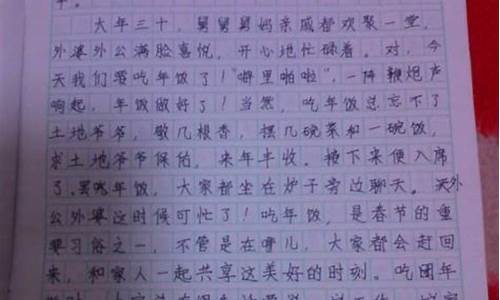 大年三十，舅舅舅妈亲戚都欢聚一堂，
外婆外公满脸喜悦，开心地忙碌着。对，今
天我们要吃年饭了！"噼里啪啦"，一阵鞭炮声
响起，年饭做好了！当然，吃年饭总忘不了
土地爷爷，敬几根香，摆几碗菜和一碗饭，
求土地爷爷保佑，来年丰收。接下来便入席
了，年饭，大家都坐在炉子旁边聊天。外
公外婆这时候可忙了！吃年饭，是春节的重
要习俗之一，不管是在哪儿，大家都会赶回
来，和家人一起共享这美好的时刻。吃团年